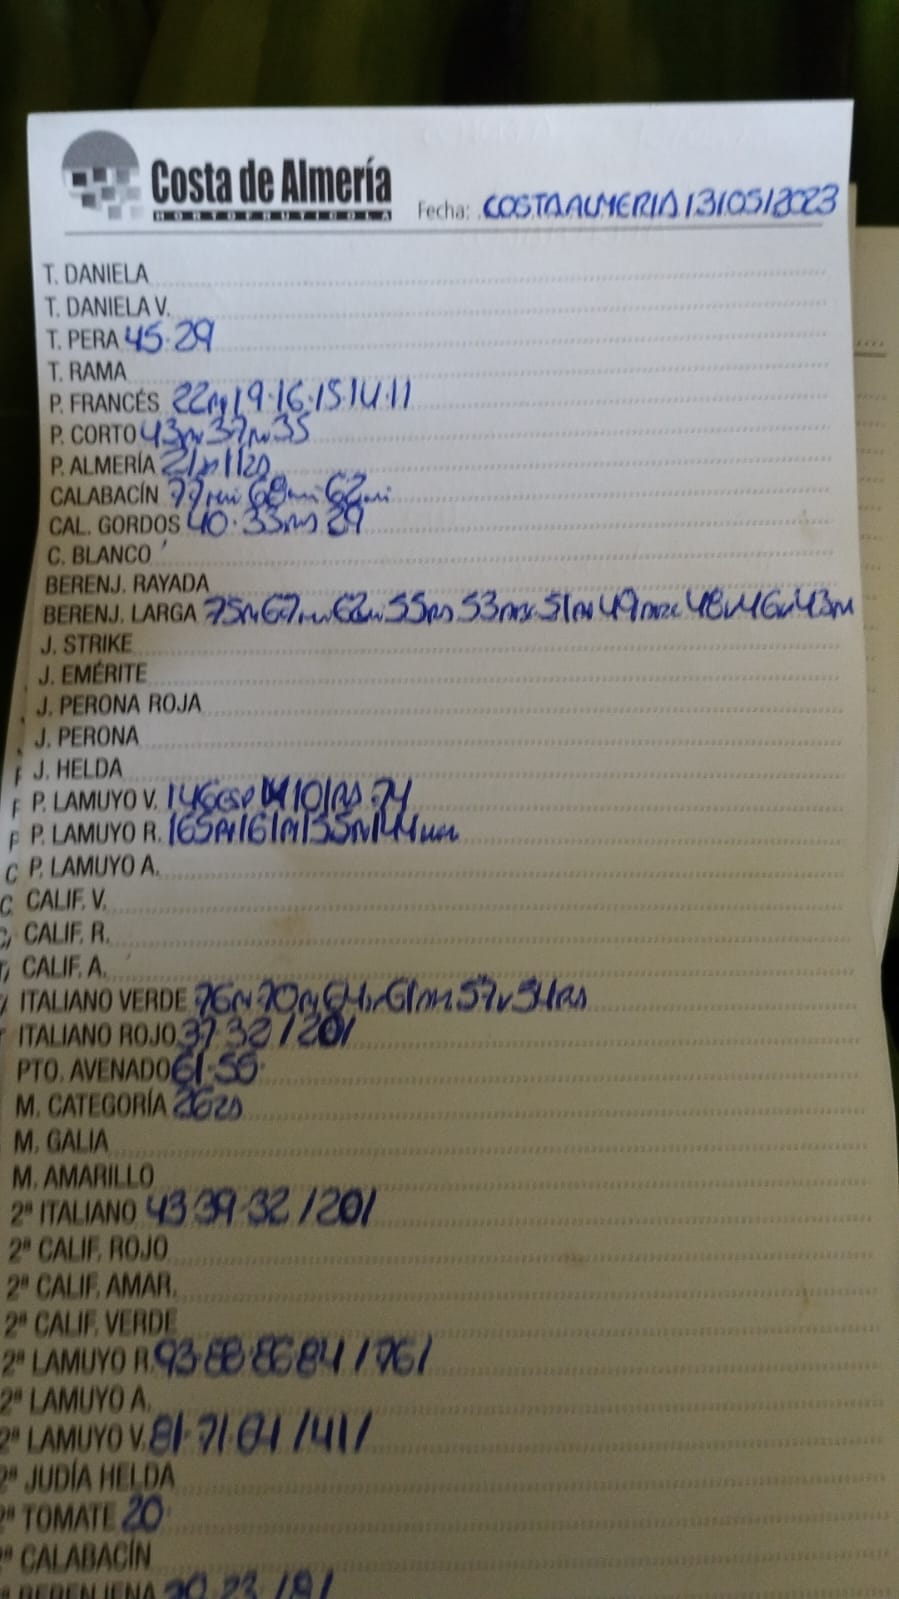 Costa de Almería
HORTOFRUTICOLA
Fecha: COSTAALMERIA 13/05/2023
T. DANIELA
T. DANIELA V.
T. PERA 45·29
T. RAMA
P. FRANCÉS 22m 19·16·15·14·11
P. CORTO 43m 37m 35
P. ALMERÍA
CALABACÍN 77mi 68mi 62mi
CAL. GORDOS 40·33ms 29
C. BLANCO
BERENJ. RAYADA
BERENJ. LARGA 75m 67m 62m 55ms 53 51m 49 48 46 43m
J. STRIKE
J. EMÉRITE
J. PERONA ROJA
J. PERONA
J. HELDA
P. LAMUYO V. 146 101 74
P. LAMUYO R. 165m 161m 155m 144
P. LAMUYO A.
CALIF. V.
CALIF. R.
CALIF. A.
ITALIANO VERDE 76m 70m 64 61 57 54
ITALIANO ROJO 37·32 /20/
PTO. AVENADO 61·56
M. CATEGORÍA
M. GALIA
M. AMARILLO
2ª ITALIANO 43·39·32 /20/
2ª CALIF. ROJO
2ª CALIF. AMAR.
2ª CALIF. VERDE
2ª LAMUYO R. 93·88·86·84 /76/
2ª LAMUYO A.
2ª LAMUYO V. 81·71·64 /41/
2ª JUDÍA HELDA
2ª TOMATE 20
2ª CALABACÍN
ª BERENJENA